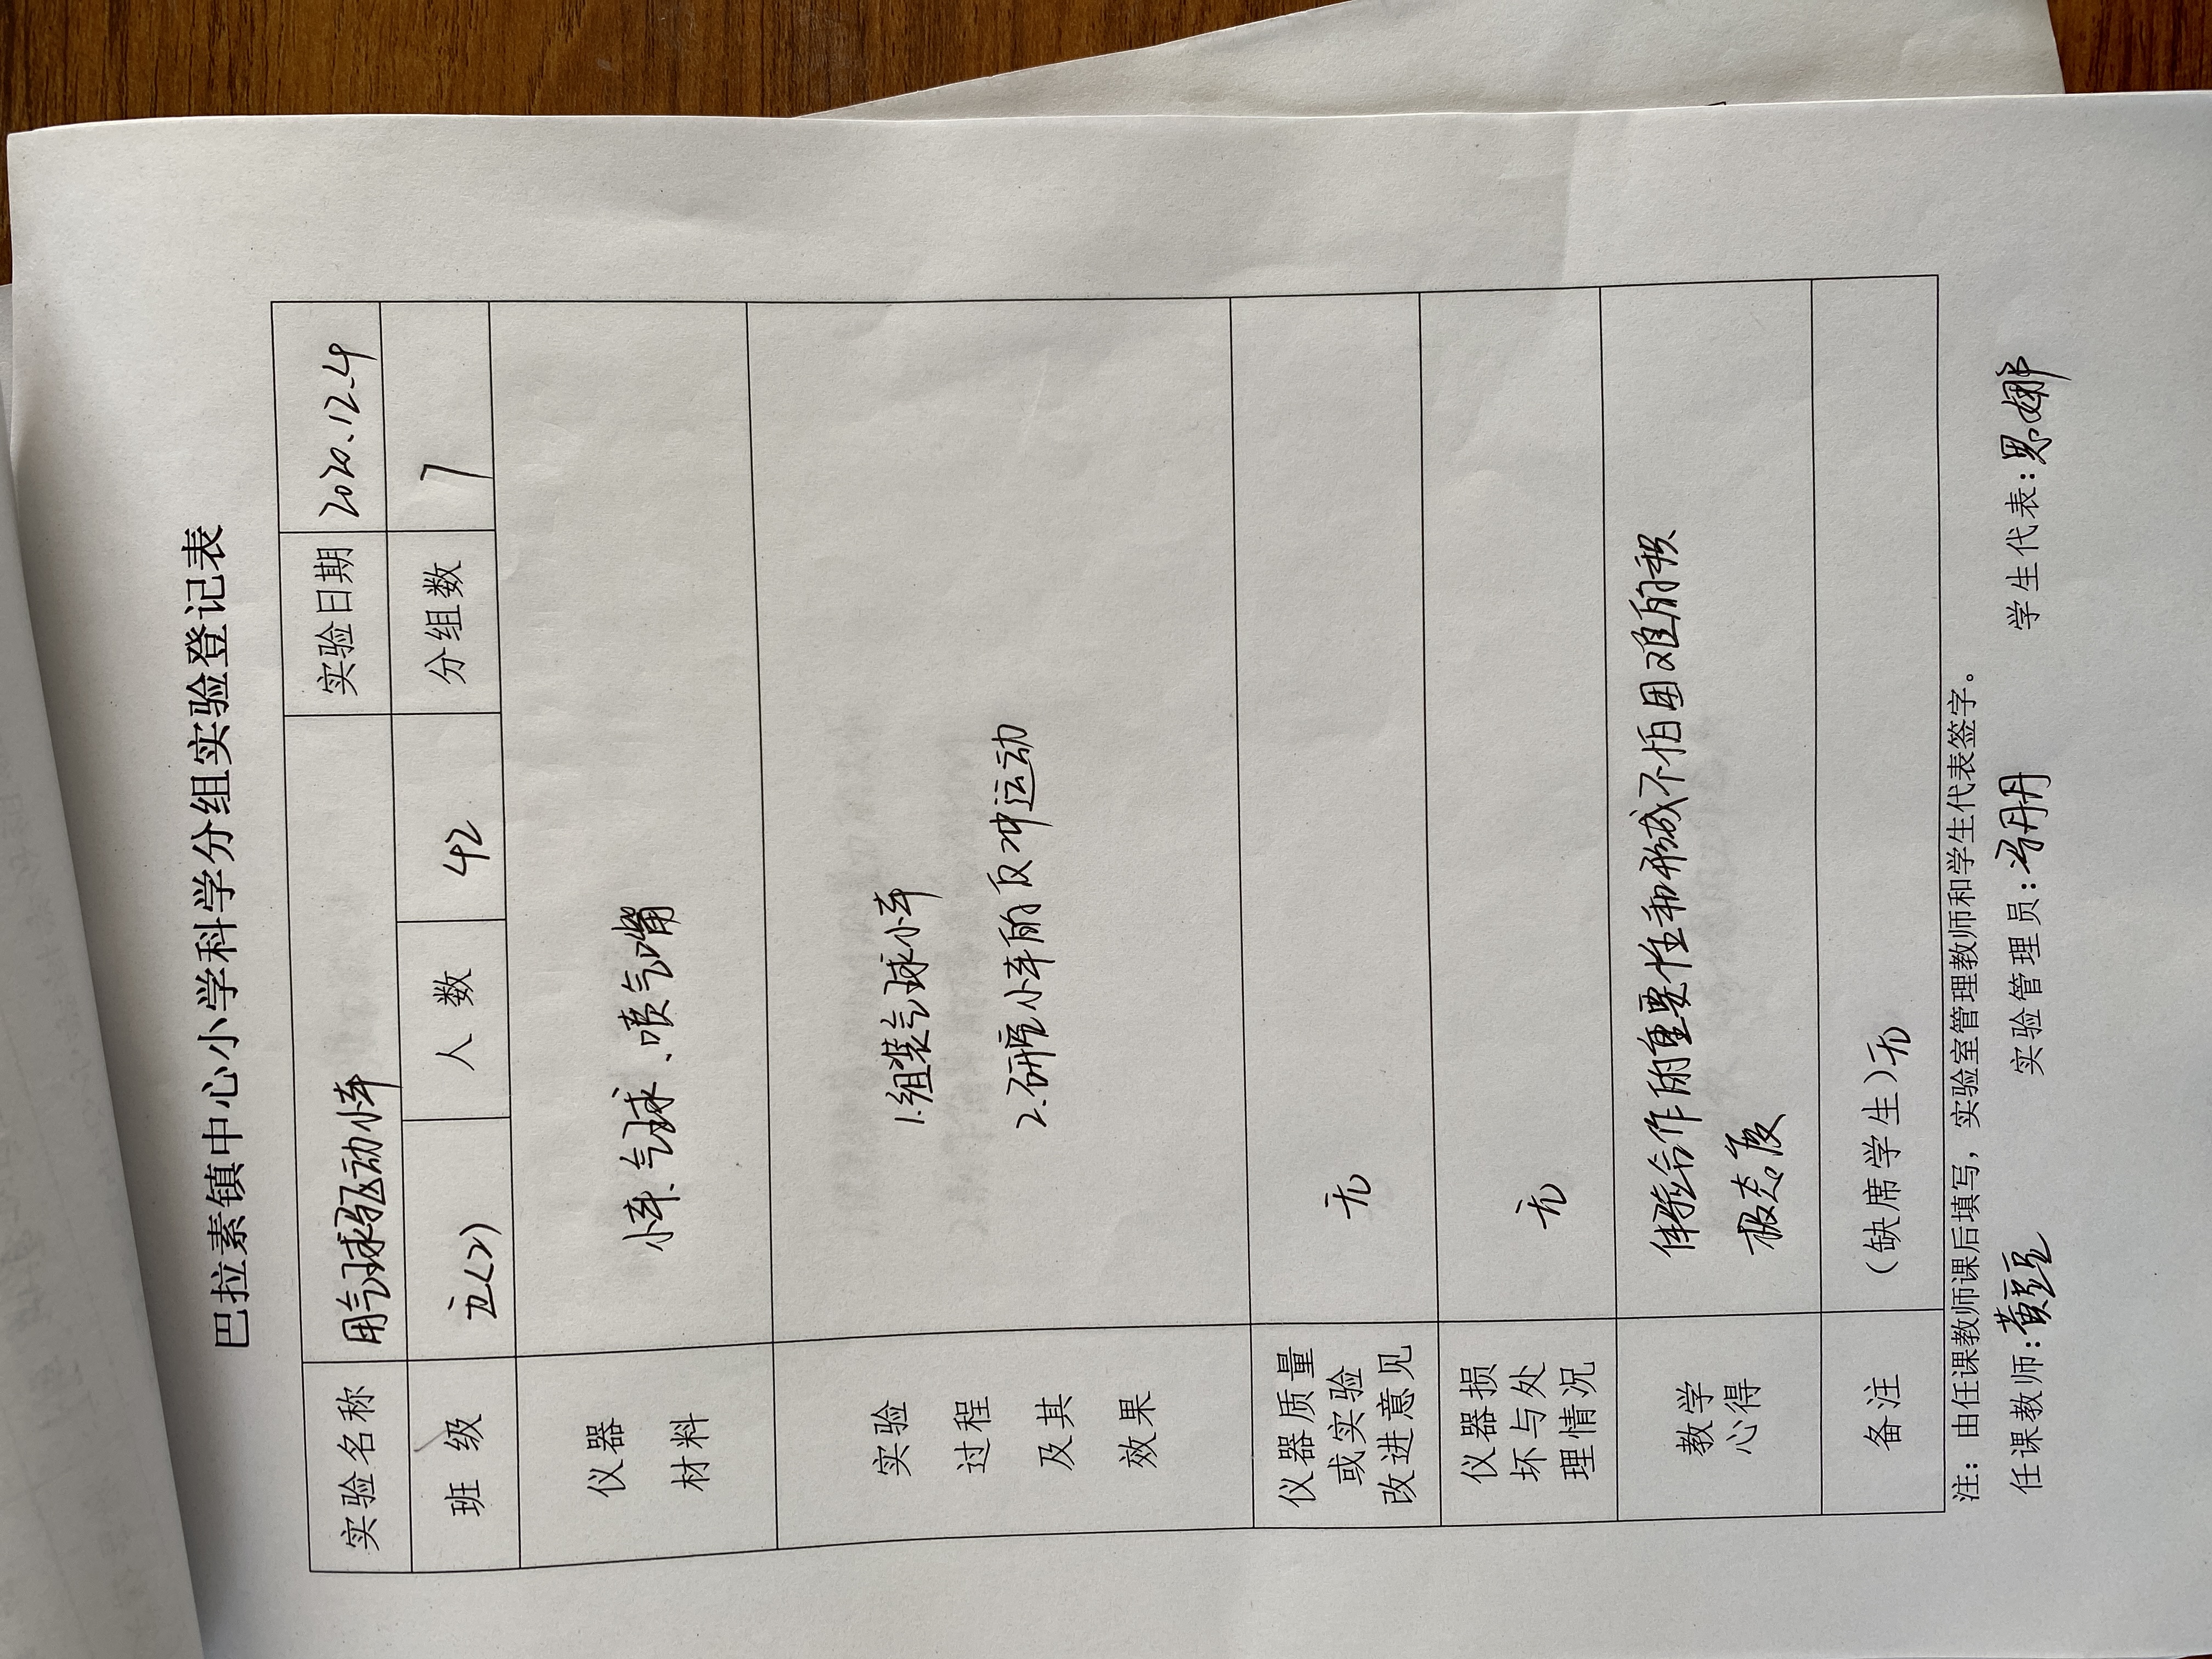 巴拉素镇中心小学科学分组实验登记表
实验名称 用气球驱动小车 实验日期 2020.12.4
班级 五(2) 人数 42 分组数 7
仪器
材料
小车、气球、喷气嘴
实验
过程
及其
效果
1.组装气球小车
2.研究小车的反冲运动
仪器质量
或实验
改进意见
无
仪器损
坏与处
理情况
无
教学
心得
体验合作的重要性和形成不怕困难的积
极态度
备注 (缺席学生)无
注：由任课教师课后填写，实验室管理教师和学生代表签字。
任课教师：黄豆豆 实验管理员： 学生代表：思娜